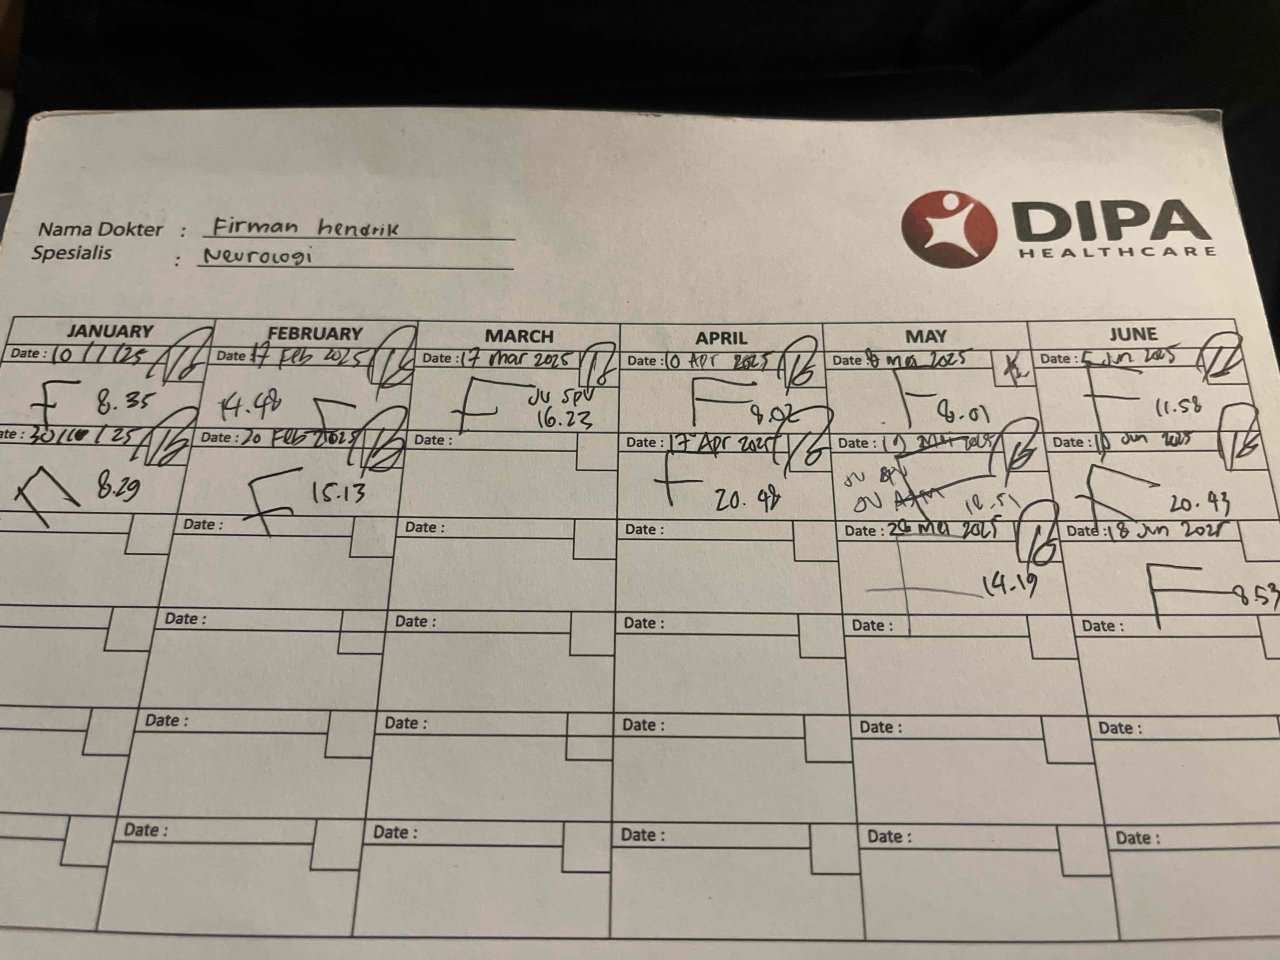 Nama Dokter : Firman hendrik
Spesialis : Neurologi
DIPA
HEALTHCARE
JANUARY FEBRUARY MARCH APRIL MAY JUNE
Date : 10/1/25 Date : 17 Feb 2025 Date : 17 mar 2025 Date : 10 Apr 2025 Date : mei 2025 Date : 5 Jun 2025
8.35 14.48 JV SPV 8.02 8.01 11.58
16.23
ate : 30/ /25 Date : 20 Feb 2025 Date : Date : 17 Apr 2025 Date : Mei 2025 Date : Jun 2025
8.29 15.13 20.48 JV 20.43
Date : Date : Date : Date : 26 Mei 2025 Date : 18 Jun 2025
14.19 8.53
Date : Date : Date : Date : Date :
Date : Date : Date : Date : Date :
Date : Date : Date : Date : Date :